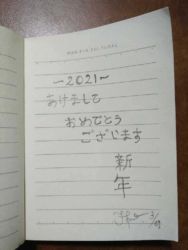 ~2021~
あけまして
おめでとう
ございます
新
年